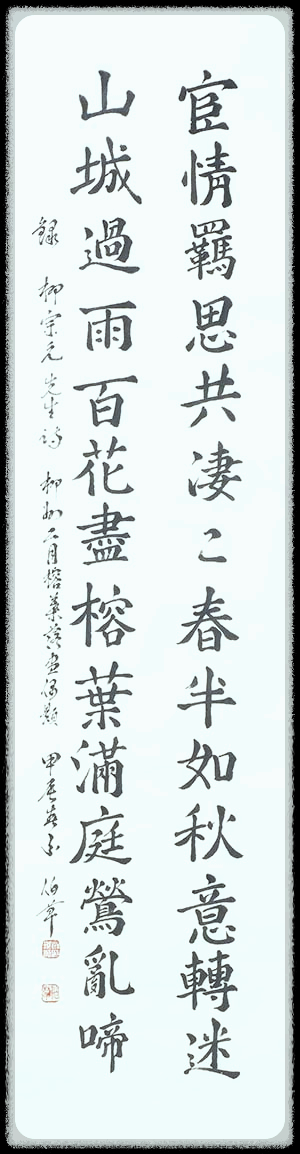 宦情羈思共淒〻春半如秋意轉迷
山城過雨百花盡榕葉滿庭鶯亂啼
錄 柳宗元先生詩 柳州二月榕葉落盡偶題 甲辰